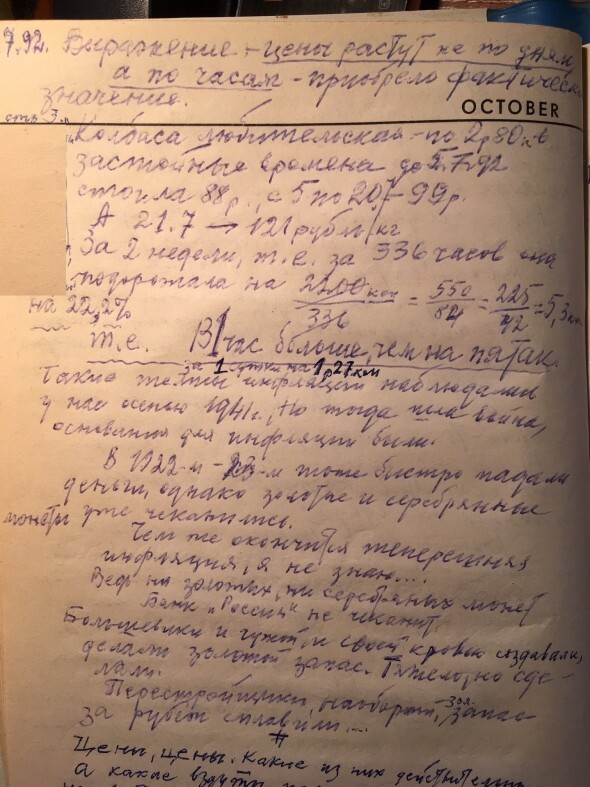 7.92. Выражение – цены растут не по дням
а по часам – приобрело фактическ
значение.
OCTOBER
стр 3.
Колбаса любительская – по 2р80к в
застойные времена до 5.7.92
стоила 88р., с 5 по 20.7 – 99р.
А 21.7 → 121 рубль кг
За 2 недели, т.е. за 336 часов она
подорожала на 2200 коп / 336 = 550 / 84 = 225 / 42 = 5,3 коп
на 22,2%
т.е. В 1 час больше, чем на пятак.
за 1 сутки на 1р27коп
Такие темпы инфляции наблюдали
у нас осенью 1941г. Но тогда шла война,
основания для инфляции были.
В 1922-м – 23-м тоже быстро падали
деньги, однако золотые и серебрянные
монеты уже чеканились.
Чем же окончится теперешняя
инфляция, я не знаю...
Ведь ни золотых, ни серебряных монет
Банк „России" не чеканит.
Большевики и чужой, и своей кровью создавали,
делали золотой запас. Тяжело, но сде-
лали.
Перестройщики, наоборот, зол. запас
за рубеж сплавили...
#
Цены, цены. Какие из них действительно
а какие вздуты